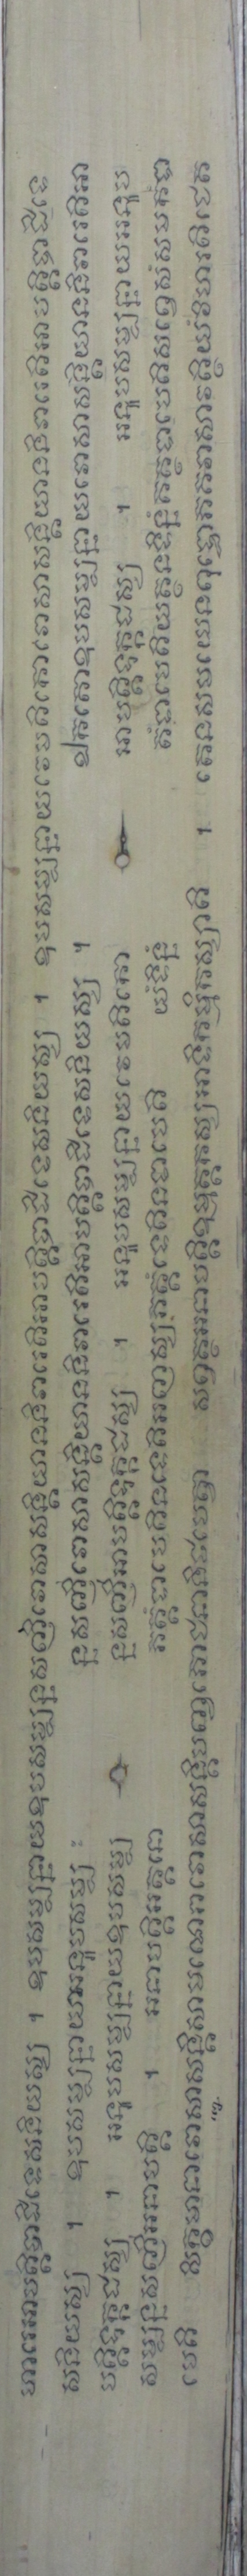 ហារេអាបត្តិបាដិទេសនិយស្ស ។ ឧបសម្បន្នាយឧបសម្បន្នសញ្ញីវោសាសន្តិយាននិវារេតិអាបត្តិបាដិទេសនិយស្ស ។ ឧបសម្បន្នាយវេមតិកោវោសាសន្តិយាននិវារេតិអាបត្តិបាដិទេ
សនិយស្ស ។ ឧបសម្បន្នាយអនុបសម្ប ៈ ន្នសញ្ញីវោសាសន្តិយាននិវារេតិអាបត្តិបាដិទេសនិយស្ស ។ ឯកតោឧបសម្បន្នាយវោសាសន្តិយាននិវារេតិអា
បត្តិទុក្កដស្ស ។ អនុបសម្បន្នាយឧបសម្ប ន្នសញ្ញីអាបត្តិទុក្កដស្ស ។ អនុបសម្បន្នាយវេមតិកោ អាបត្តិទុក្កដស្ស ។ អនុបសម្បន្នាយអនុប
សម្បន្នសញ្ញីអនាបត្តិ ។ អនាបត្តិអត្តនោ ភត្តំទាបេតិនទេតិអញស្សភត្តំទេតិនទាបេតិ យំនទិន្នំ តំទាបេតិយត្ថនទិន្នំតត្ថទាបេតិសព្វេសំសមកំទា
បេតិ សិក្ខមានាវោសាសន្តិសាមណេរាវោសាសន្តិបញ្ចភោជនានិឋបេត្វា សព្វត្ថអនាបត្តិឧម្មត្តកស្សអាទិកម្មិកស្សាតិ ។ តេនសមយេនពុទ្ធោភគវាសាវត្ថិយំវិហរតិជេត